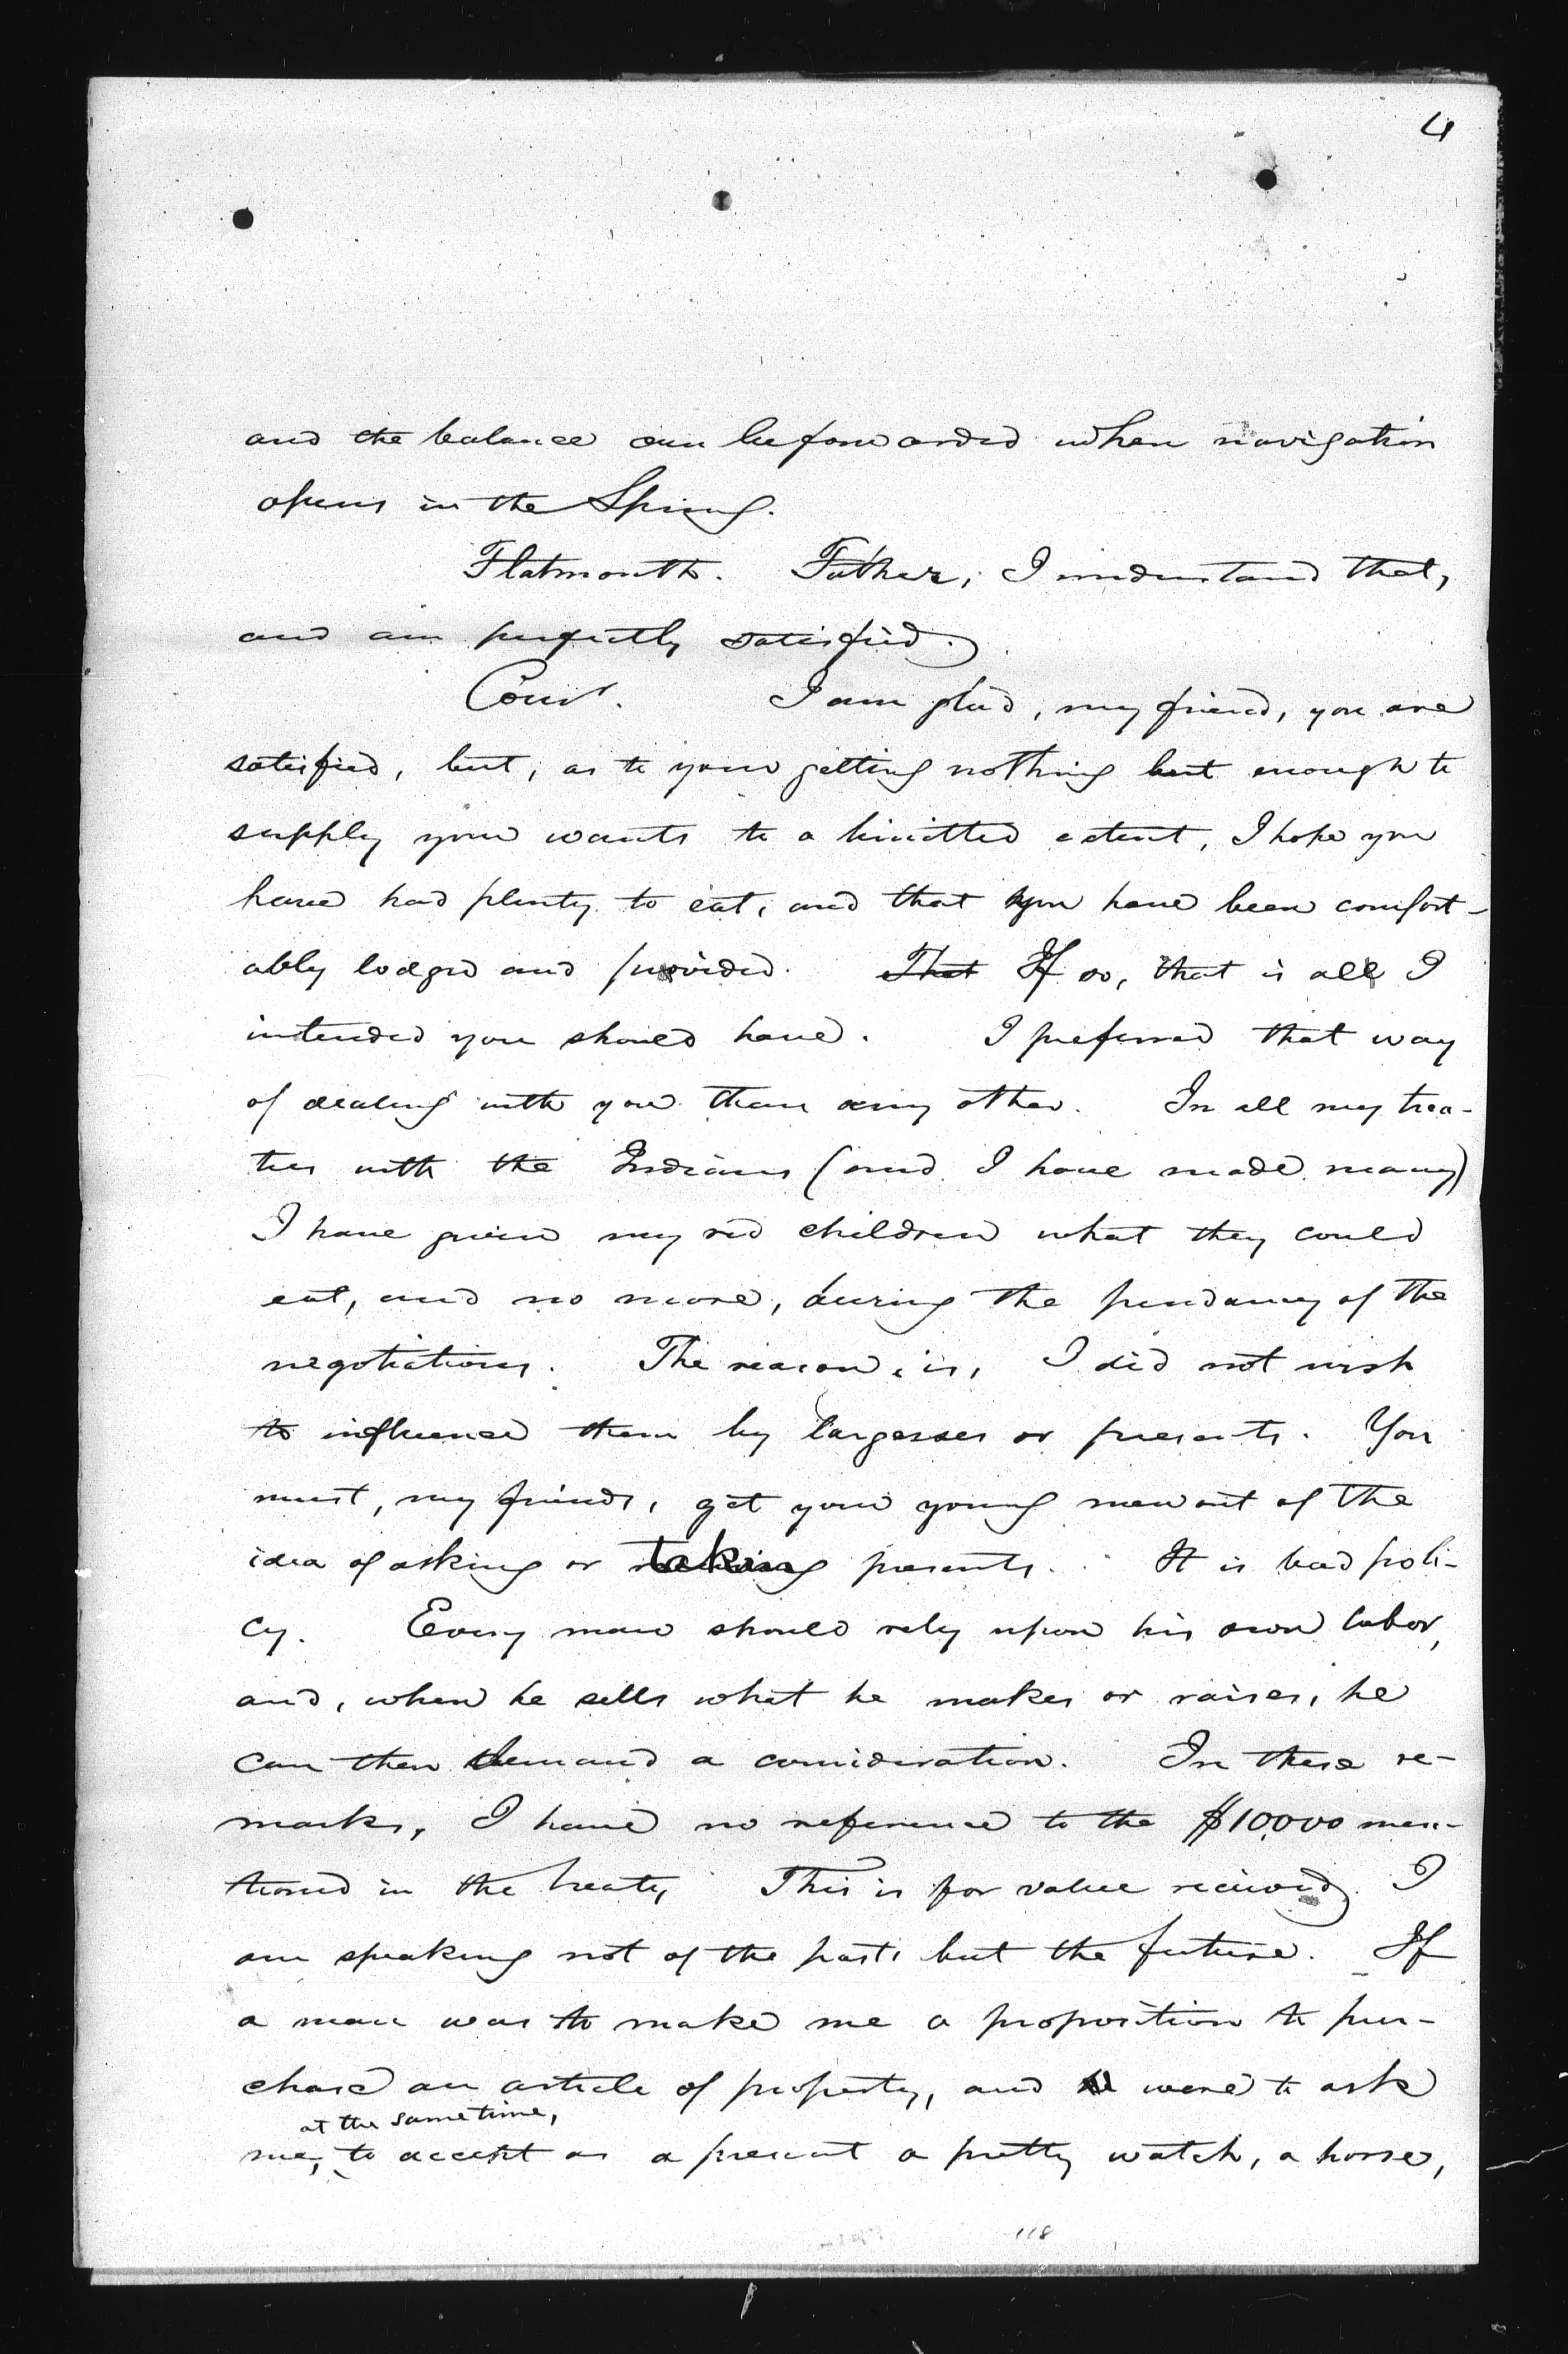 4
and the balance can be forwarded when navigation
opens in the Spring.
Flatmouth. Father, I understand that,
and am perfectly satisfied.
Comr. I am glad, my friend, you are
satisfied, but, as to your getting nothing but enough to
supply your wants to a limitted extent, I hope you
have had plenty to eat, and that you have been comfort-
ably lodged and provided. That If so, that is all I
intended you should have. I preferred that way
of dealing with you than any other. In all my trea-
ties with the Indians (and I have made many)
I have given my red children what they could
eat, and no more, during the pendancy of the
negotiations. The reason, is, I did not wish
to influence them by largesses or presents. You
must, my friends, get your young men out of the
idea of asking or taking presents. It is bad poli-
cy. Every man should rely upon his own labor,
and, when he sells what he makes or raises, he
can then demand a consideration. In these re-
marks, I have no reference to the $10,000 men-
tioned in the treaty, This is for value received, I
am speaking not of the past, but the future. If
a man was to make me a proposition to pur-
chase an article of property, and were to ask
at the same time,
me, to accept as a present a pretty watch, a horse,
118